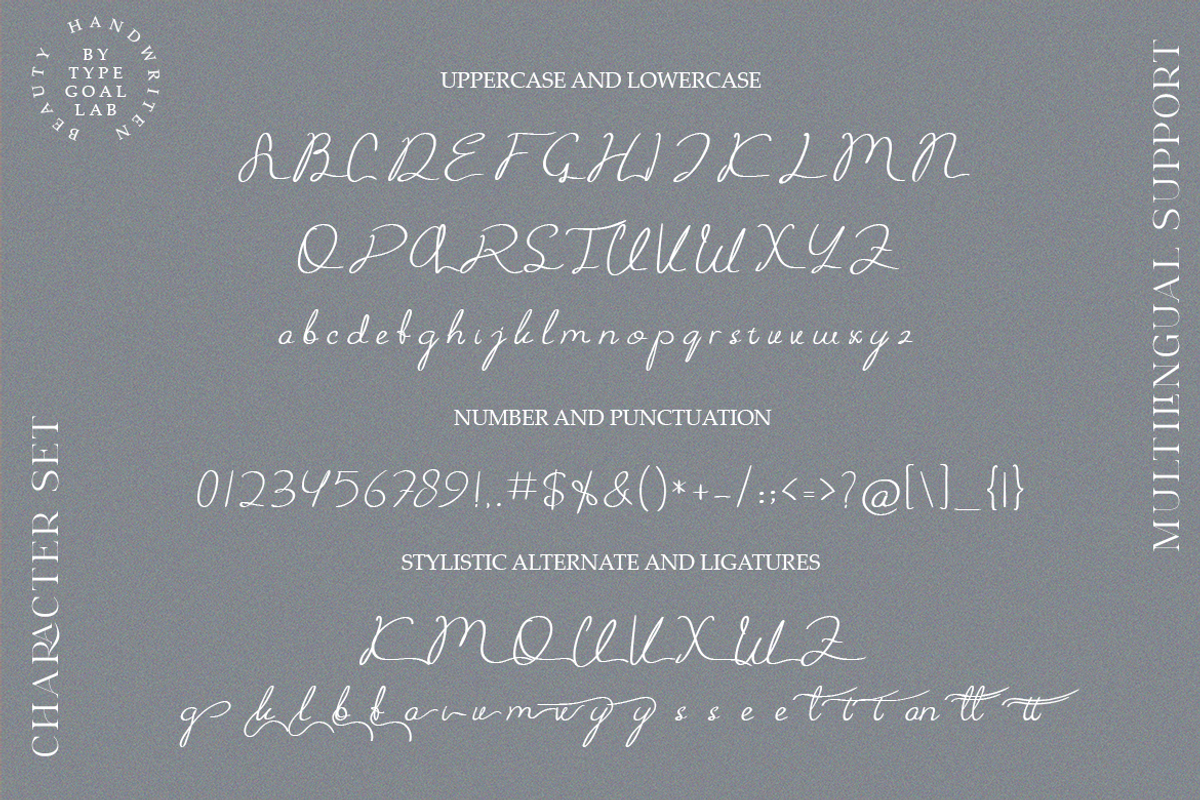 BEAUTY HANDWRITEN
BY
TYPE
GOAL
LAB
UPPERCASE AND LOWERCASE
ABCDEFGHIJKLMN
OPQRSTUVWXYZ
abcdefghijklmnopqrstuvwxyz
NUMBER AND PUNCTUATION
0123456789!,.#$%&()*+-/:;<=>?@[\]_{|}
STYLISTIC ALTERNATE AND LIGATURES
KMOUVXWZ
CHARACTER SET
MULTILINGUAL SUPPORT